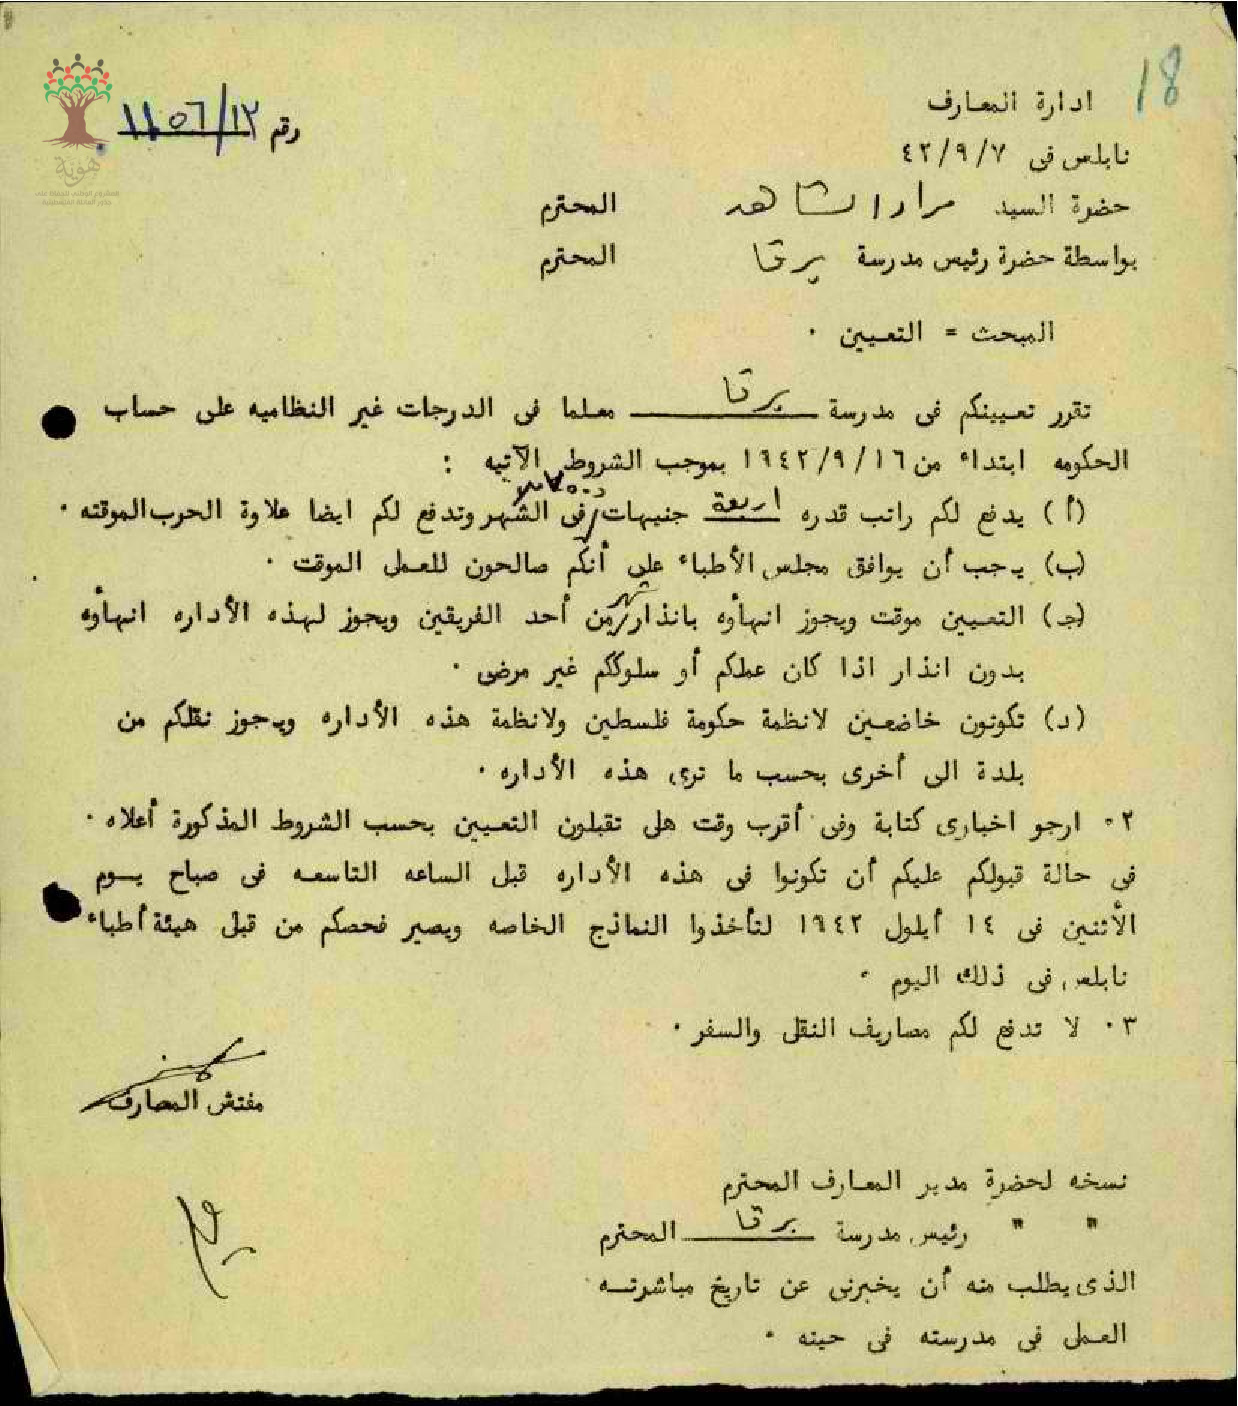 18
ادارة المعارف
رقم ١١٥٦/١٣
نابلس فى ٤٢/٩/٧
حضرة السيد مراد الشاهد المحترم
بواسطة حضرة رئيس مدرسة برقا المحترم
المبحث = التعيين ٠
تقرر تعيينكم فى مدرسة برقا معلما فى الدرجات غير النظاميه على حساب
الحكومه ابتداء من ١٩٤٢/٩/١٦ بموجب الشروط الآتيه :
(أ) يدفع لكم راتب قدره اربعة جنيهات فى الشهر وتدفع لكم ايضا علاوة الحرب الموقته ٠
(ب) يجب أن يوافق مجلس الأطباء على أنكم صالحون للعمل الموقت ٠
(جـ) التعيين موقت ويجوز انهاؤه بانذار شهر من أحد الفريقين ويجوز لهذه الأداره انهاؤه
بدون انذار اذا كان عملكم أو سلوككم غير مرضى ٠
(د) تكونون خاضعين لانظمة حكومة فلسطين ولانظمة هذه الأداره ويجوز نقلكم من
بلدة الى أخرى بحسب ما ترى هذه الأداره ٠
٢٠ ارجو اخبارى كتابة وفى أقرب وقت هل تقبلون التعيين بحسب الشروط المذكورة أعلاه ٠
فى حالة قبولكم عليكم أن تكونوا فى هذه الأداره قبل الساعه التاسعه فى صباح يوم
الأثنين فى ١٤ أيلول ١٩٤٢ لتأخذوا النماذج الخاصه ويصير فحصكم من قبل هيئة أطباء
نابلس فى ذلك اليوم ٠
٣٠ لا تدفع لكم مصاريف النقل والسفر ٠
مفتش المعارف
نسخه لحضرة مدير المعارف المحترم
" " رئيس مدرسة برقا المحترم
الذى يطلب منه أن يخبرنى عن تاريخ مباشرته
العمل فى مدرسته فى حينه ٠
هوية